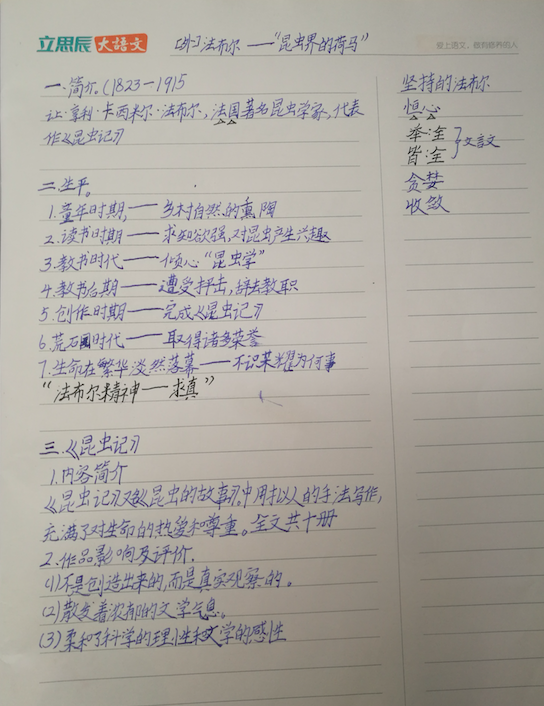 立思辰 大语文
[外]法布尔——“昆虫界的荷马”
爱上语文，做有修养的人
一.简介.(1823—1915
让·亨利·卡西米尔·法布尔，法国著名昆虫学家，代表
作《昆虫记》
二.生平。
1.童年时期,——乡村自然的熏陶
2.读书时期——求知欲强,对昆虫产生兴趣
3.教书时代——倾心“昆虫学”
4.教书后期——遭受抨击,辞去教职
5.创作时期——完成《昆虫记》
6.荒石园时代——取得诸多荣誉
7.生命在繁华淡然落幕——不识荣耀为何事
“法布尔精神——求真”
三.《昆虫记》
1.内容简介
《昆虫记》又《昆虫的故事》.中用拟人的手法写作,
充满了对生命的热爱和尊重。全文共十册
2.作品影响及评价.
(1)不是创造出来的,而是真实观察的。
(2)散发着浓郁的文学气息。
(3)柔和了科学的理性和文学的感性
坚持的法布尔
恒心
举:全
皆:全 }文言文
贪婪
收敛